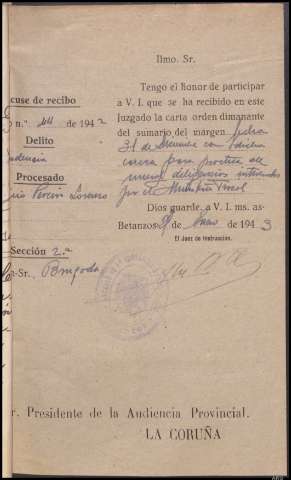 Ilmo. Sr.
Tengo el honor de participar
a V. I. que se ha recibido en este
Juzgado la carta orden dimanante
del sumario del margen, fecha
31 de Diciembre con
causa para práctica de
nuevas diligencias interesadas
por el Ministerio Fiscal
Dios guarde a V. I. ms. as-
Betanzos 9 de Enero de 1943
El Juez de Instrucción,
cuse de recibo
n.º 44 de 1942
Delito
Procesado
Pereira Lorenzo
Sección 2.ª
-Sr.
r. Presidente de la Audiencia Provincial.
LA CORUÑA